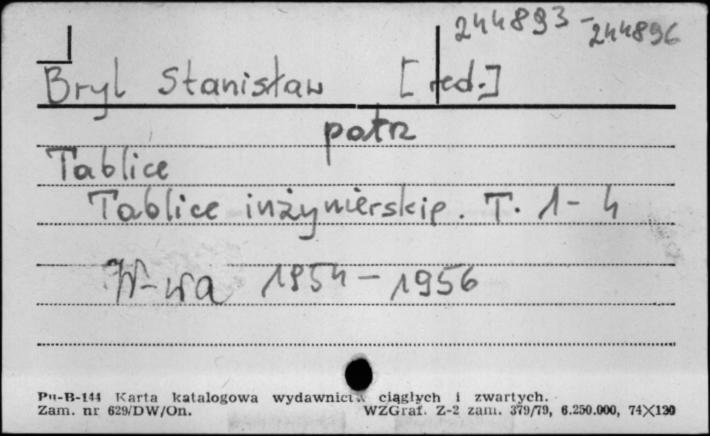 244893-244896
Bryl Stanisław [red.]
patrz
Tablice
Tablice inżynierskie. T. 1-4
W-wa 1954-1956
Pu-B-144 Karta katalogowa wydawnictw ciągłych i zwartych.
Zam. nr 629/DW/On. WZGraf. Z-2 zam. 379/79, 6.250.000, 74X120